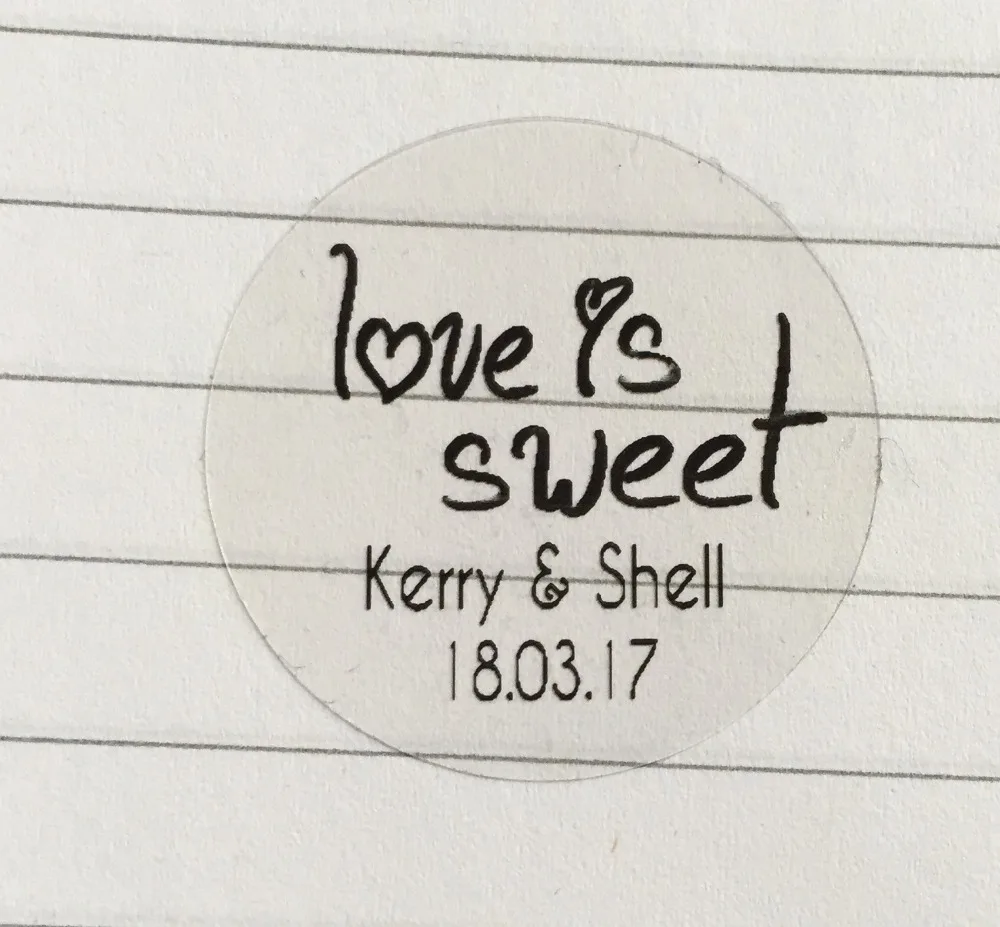 love is
sweet
Kerry & Shell
18.03.17